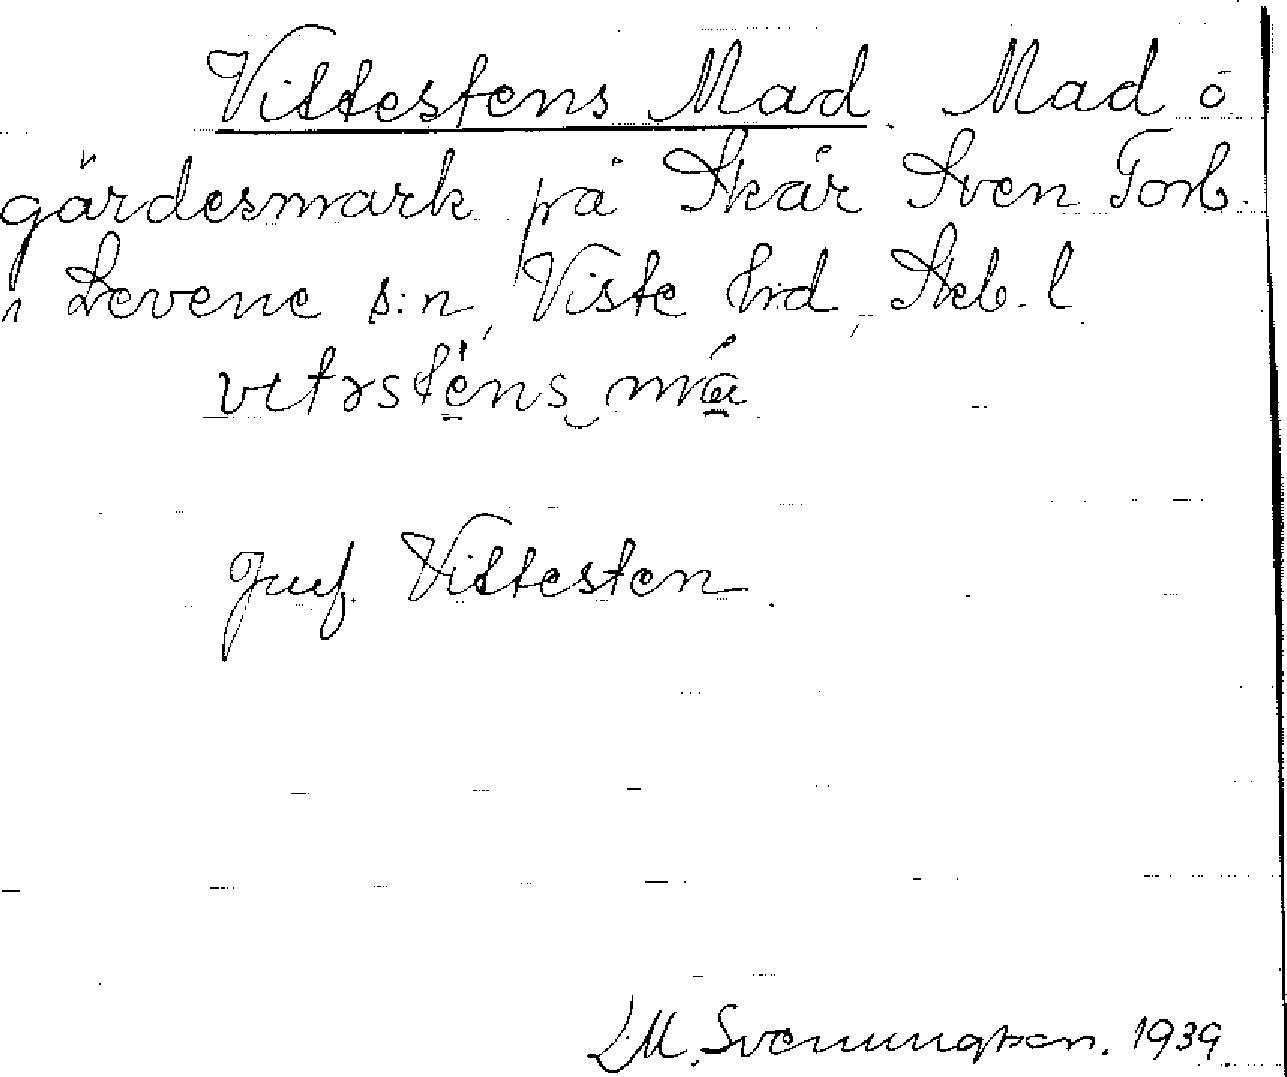 Vittestens Mad. Mad o
gärdesmark på Skår Sven Torb.
i Levene s:n, Viste hrd, Skb. l.
vıtəsténs má
Jmf. Vittesten.
L.M. Svenungson. 1939.